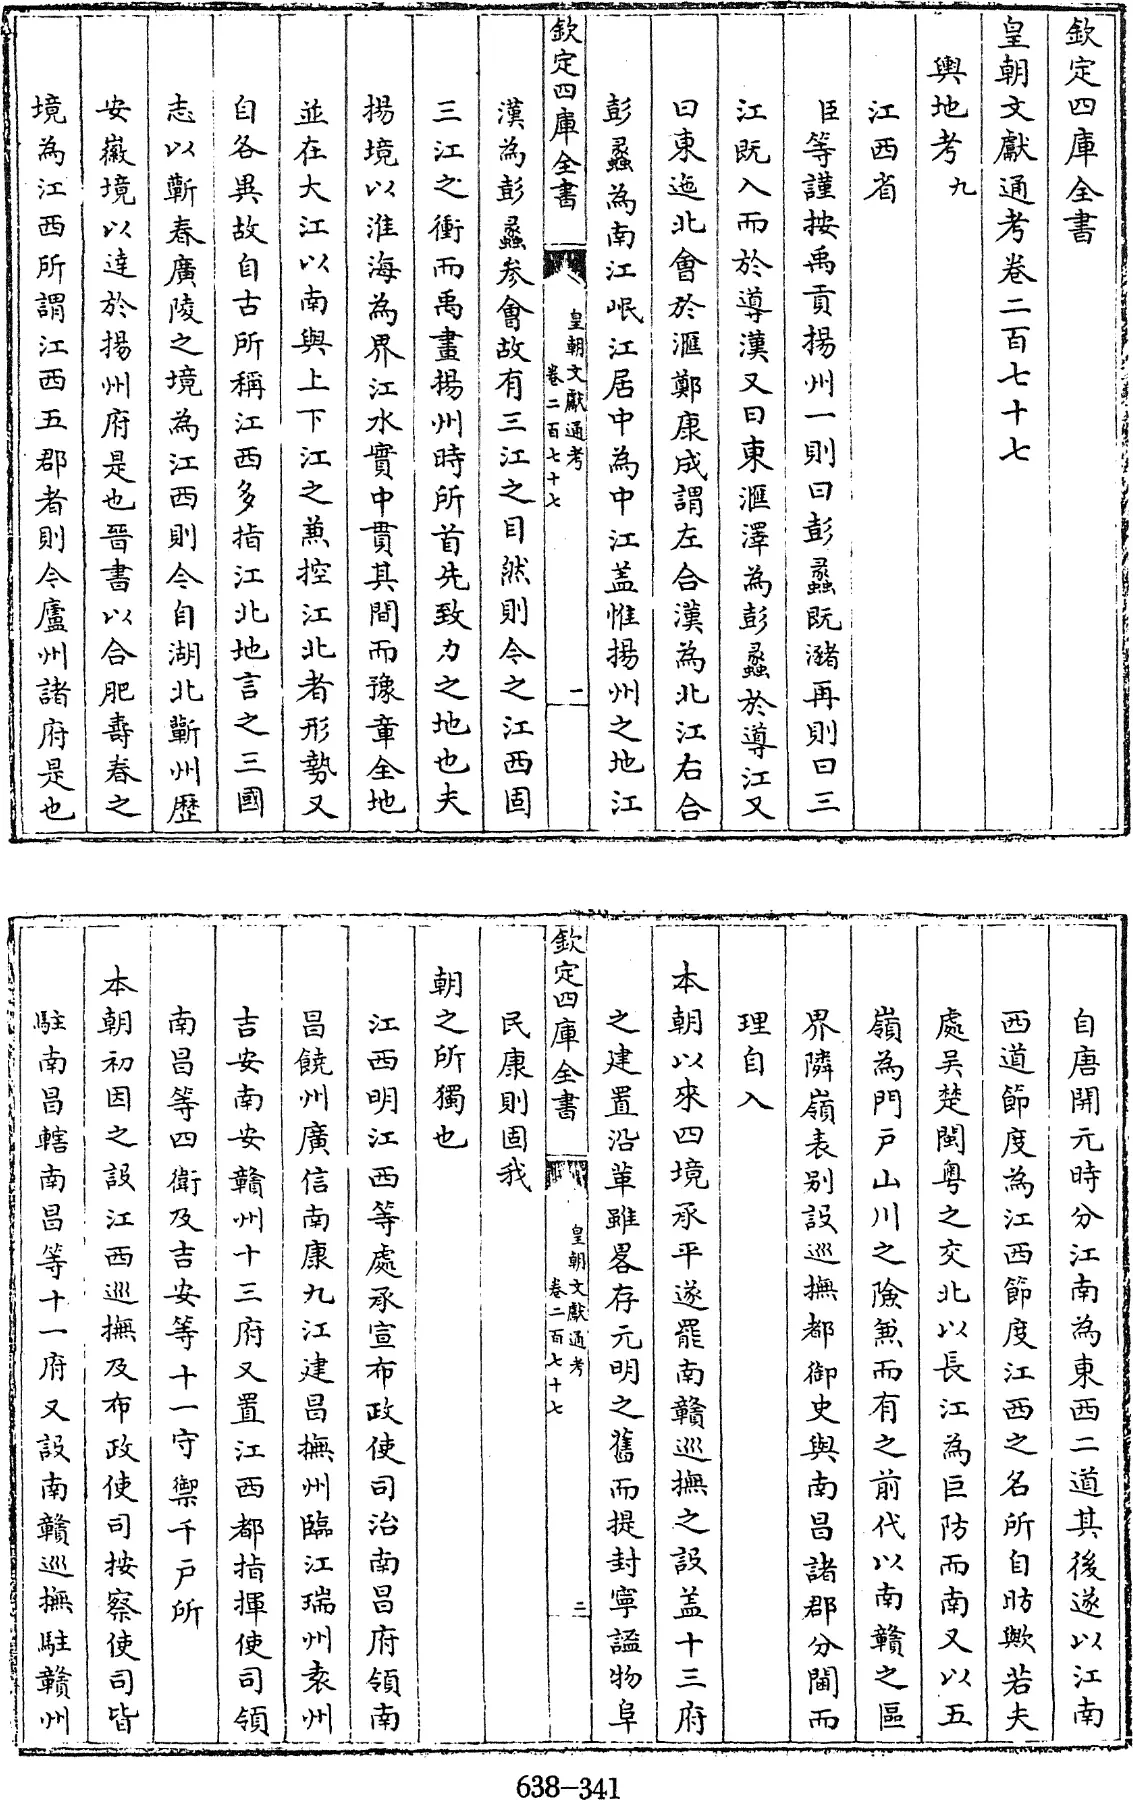 欽定四庫全書
皇朝文獻通考卷二百七十七
輿地考九
江西省
臣等謹按禹貢揚州一則曰彭蠡既瀦再則曰三
江既入而於導漢又曰東滙澤為彭蠡於導江又
曰東迤北會於滙鄭康成謂左合漢為北江右合
彭蠡為南江岷江居中為中江盖惟揚州之地江
欽定四庫全書
皇朝文獻通考
卷二百七十七
二
漢為彭蠡参會故有三江之目然則今之江西固
三江之衝而禹畫揚州時所首先致力之地也夫
揚境以淮海為界江水實中貫其間而豫章全地
並在大江以南與上下江之兼控江北者形勢又
自各異故自古所稱江西多指江北地言之三國
志以蘄春廣陵之境為江西則今自湖北蘄州歷
安徽境以達於揚州府是也晉書以合肥壽春之
境為江西所謂江西五郡者則今廬州諸府是也
自唐開元時分江南為東西二道其後遂以江南
西道節度為江西節度江西之名所自昉歟若夫
處吳楚閩粤之交北以長江為巨防而南又以五
嶺為門戶山川之險兼而有之前代以南贛之區
界隣嶺表别設巡撫都御史與南昌諸郡分閫而
理自入
本朝以來四境承平遂罷南贛巡撫之設盖十三府
之建置沿革雖畧存元明之舊而提封寧謐物阜
欽定四庫全書
皇朝文獻通考
卷二百七十七
三
民康則固我
朝之所獨也
江西明江西等處承宣布政使司治南昌府領南
昌饒州廣信南康九江建昌撫州臨江瑞州袁州
吉安南安贛州十三府又置江西都指揮使司領
南昌等四衛及吉安等十一守禦千戶所
本朝初因之設江西巡撫及布政使司按察使司皆
駐南昌轄南昌等十一府又設南贛巡撫駐贛州
638-341